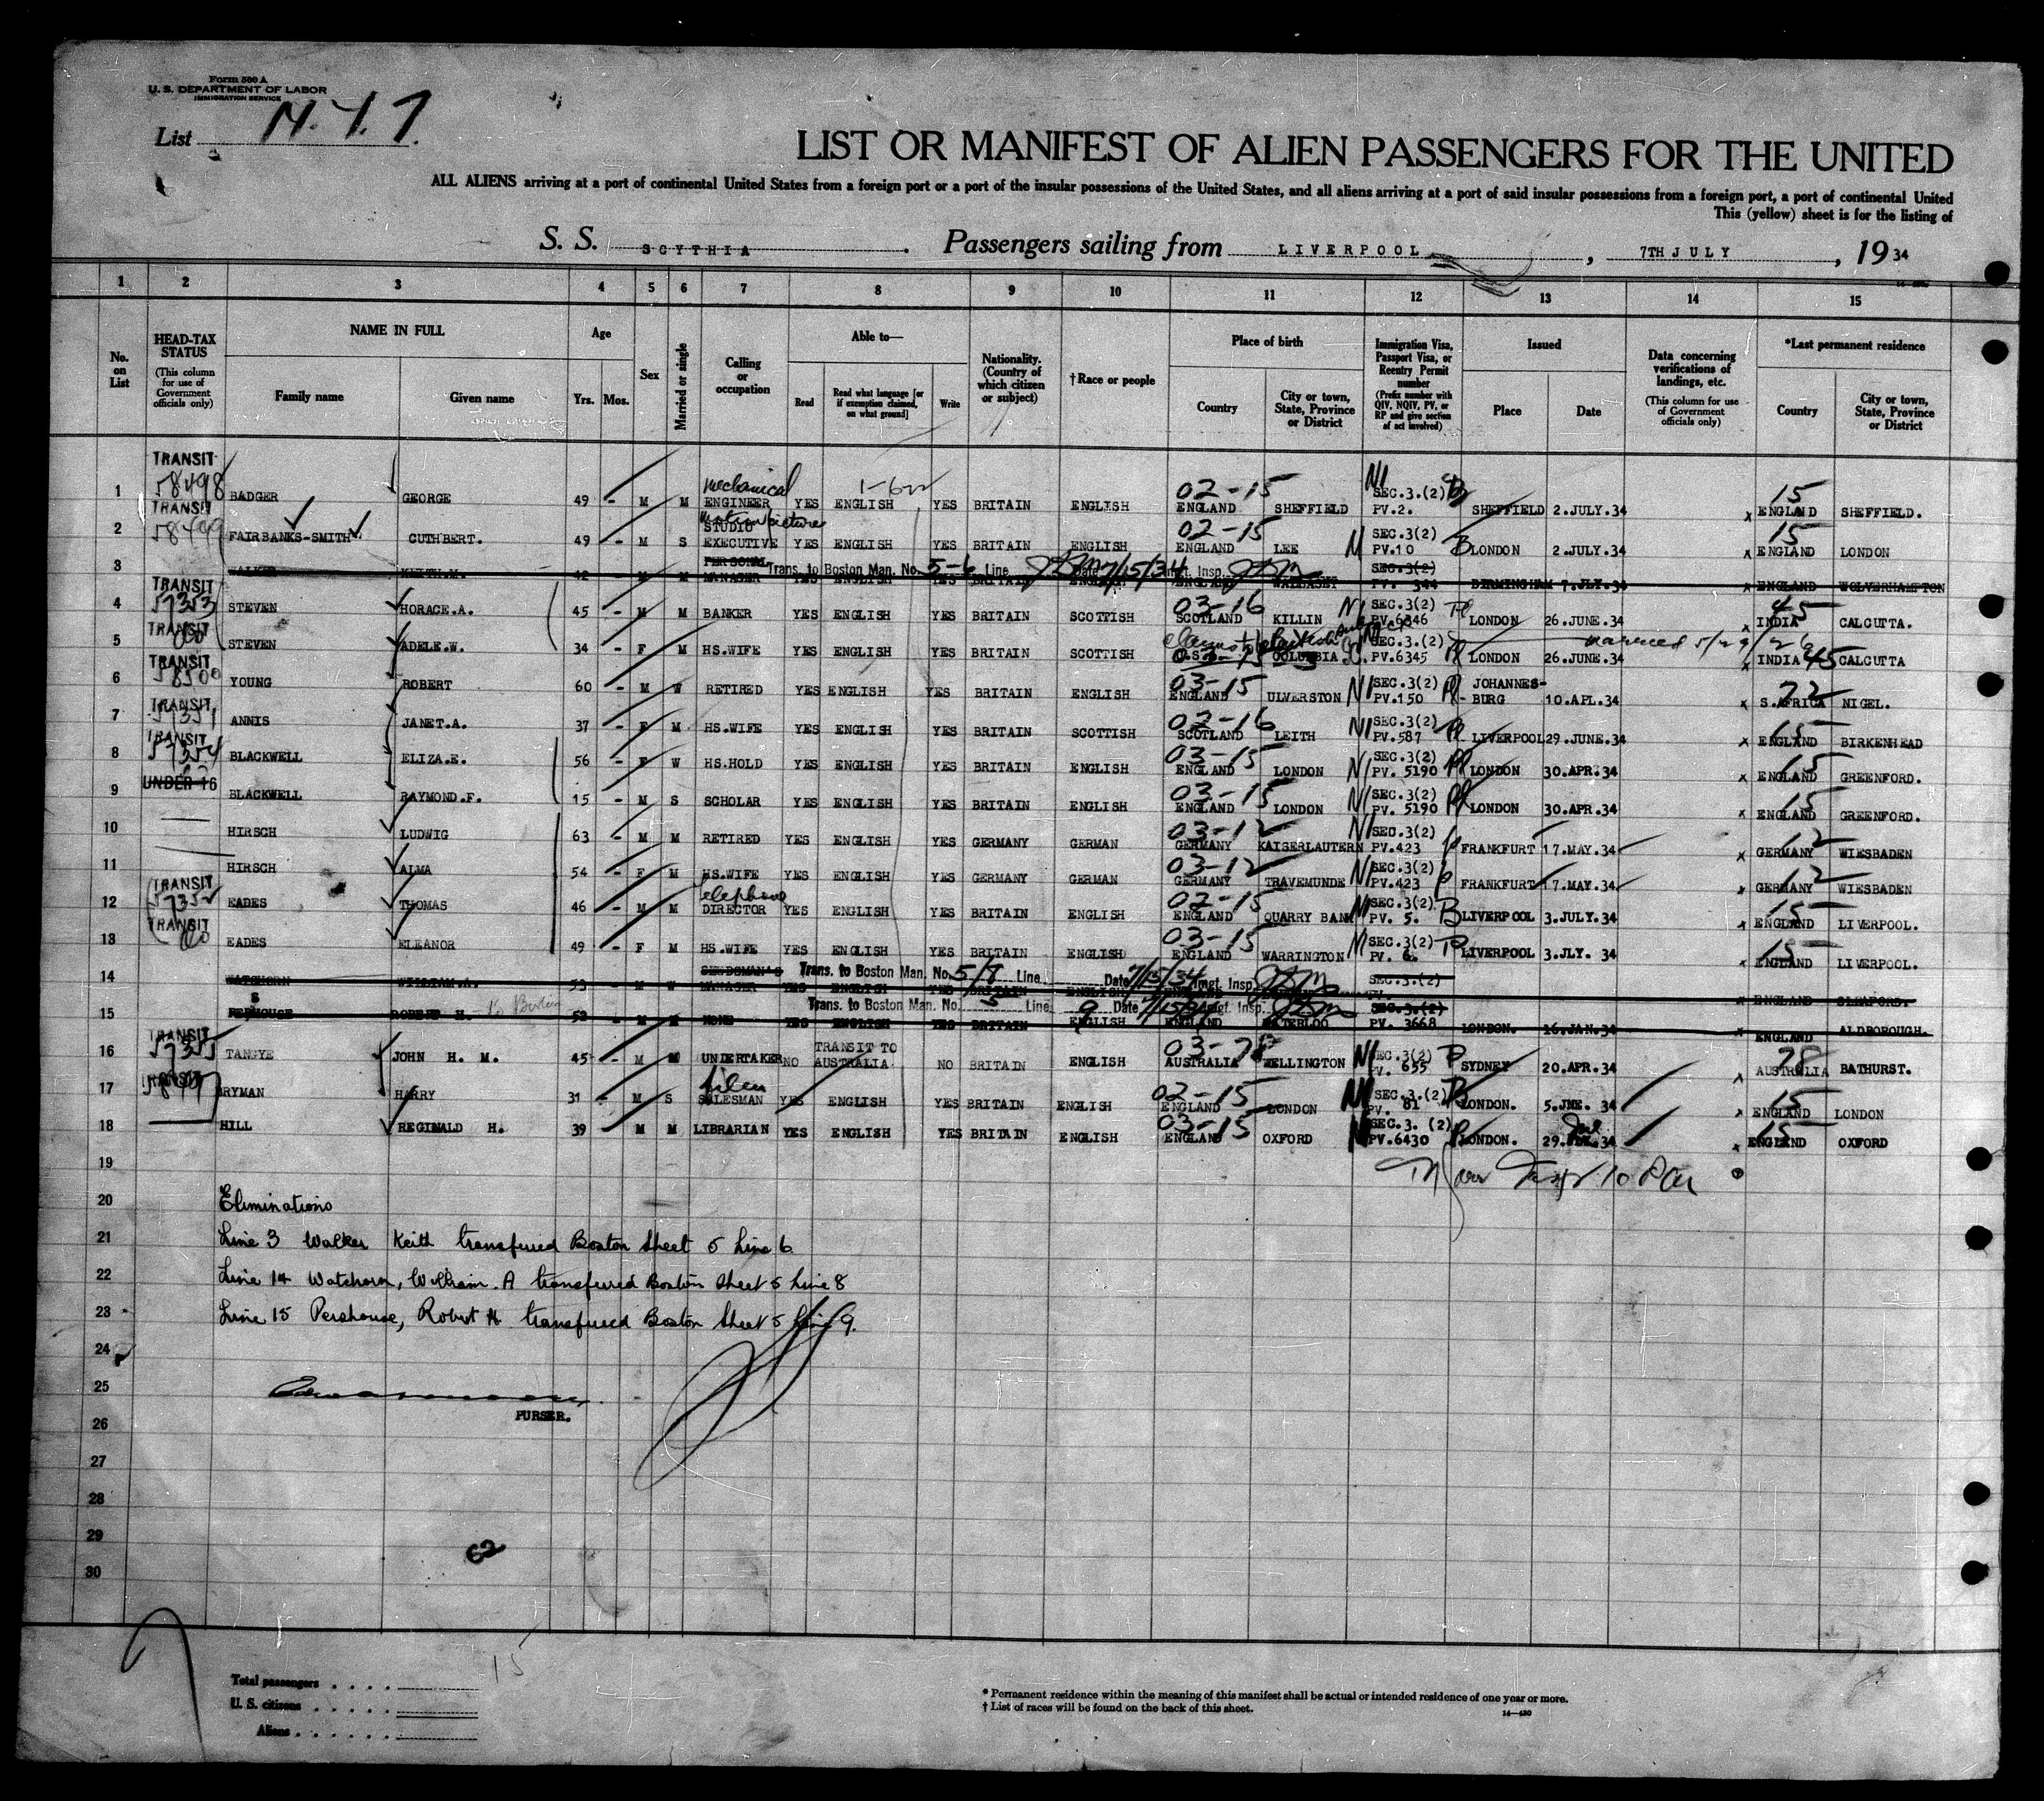 Form 500 A
U. S. DEPARTMENT OF LABOR
IMMIGRATION SERVICE
List N. Y. 7.
LIST OR MANIFEST OF ALIEN PASSENGERS FOR THE UNITED
ALL ALIENS arriving at a port of continental United States from a foreign port or a port of the insular possessions of the United States, and all aliens arriving at a port of said insular possessions from a foreign port, a port of continental United
This (yellow) sheet is for the listing of
S. S. SCYTHIA. Passengers sailing from LIVERPOOL, 7TH JULY, 1934
1 2 3 4 5 6 7 8 9 10 11 12 13 14 15
No. on List
HEAD-TAX STATUS (This column for use of Government officials only)
NAME IN FULL Family name Given name
Age Yrs. Mos.
Sex
Married or single
Calling or occupation
Able to— Read Read what language [or if exemption claimed, on what ground] Write
Nationality. (Country of which citizen or subject)
†Race or people
Place of birth Country City or town, State, Province or District
Immigration Visa, Passport Visa, or Reentry Permit number (Prefix number with QIV, NQIV, PV, or RP and give section of act involved)
Issued Place Date
Data concerning verifications of landings, etc. (This column for use of Government officials only)
*Last permanent residence Country City or town, State, Province or District
1 TRANSIT 58498 BADGER GEORGE 49 - M M mechanical ENGINEER YES ENGLISH YES BRITAIN ENGLISH 02-15 ENGLAND SHEFFIELD SEC.3.(2) PV.2. SHEFFIELD 2.JULY.34 x 15 ENGLAND SHEFFIELD.
2 TRANSIT 58499 FAIRBANKS-SMITH CUTHBERT. 49 - M S motion picture STUDIO EXECUTIVE YES ENGLISH YES BRITAIN ENGLISH 02-15 ENGLAND LEE SEC.3(2) PV.10 LONDON 2.JULY.34 x 15 ENGLAND LONDON
3 WALKER KEITH.M. 42 - M M PERSONAL MANAGER YES ENGLISH YES BRITAIN ENGLISH ENGLAND Trans. to Boston Man. No. 5-6 Line Date 7/15/34 Imgt. Insp. SEC.3(2) PV. 344 BIRMINGHAM 7.JLY.34 x ENGLAND WOLVERHAMPTON
4 TRANSIT 57353 STEVEN HORACE.A. 45 - M M BANKER YES ENGLISH YES BRITAIN SCOTTISH 03-16 SCOTLAND KILLIN NI SEC.3(2) PV.6346 LONDON 26.JUNE.34 x 45 INDIA CALCUTTA.
5 TRANSIT do STEVEN ADELE.W. 34 - F M HS.WIFE YES ENGLISH YES BRITAIN SCOTTISH U.S. COLUMBIA SEC.3.(2) PV.6345 LONDON 26.JUNE.34 married 5/29/26 x INDIA 45 CALCUTTA
6 TRANSIT 58500 YOUNG ROBERT 60 - M W RETIRED YES ENGLISH YES BRITAIN ENGLISH 03-15 ENGLAND ULVERSTON NI SEC.3(2) PV.150 JOHANNES-BURG 10.APL.34 x 72 S.AFRICA NIGEL.
7 TRANSIT 57351 ANNIS JANET.A. 37 - F M HS.WIFE YES ENGLISH YES BRITAIN SCOTTISH 02-16 SCOTLAND LEITH NI SEC.3(2) PV.587 LIVERPOOL 29.JUNE.34 x 15 ENGLAND BIRKENHEAD
8 TRANSIT 57354 BLACKWELL ELIZA.E. 56 - F W HS.HOLD YES ENGLISH YES BRITAIN ENGLISH 03-15 ENGLAND LONDON NI SEC.3(2) PV. 5190 LONDON 30.APR.34 x 15 ENGLAND GREENFORD.
9 UNDER 16 BLACKWELL RAYMOND.F. 15 - M S SCHOLAR YES ENGLISH YES BRITAIN ENGLISH 03-15 ENGLAND LONDON NI SEC.3(2) PV. 5190 LONDON 30.APR.34 x 15 ENGLAND GREENFORD.
10 HIRSCH LUDWIG 63 - M M RETIRED YES ENGLISH YES GERMANY GERMAN 03-12 GERMANY KAISERLAUTERN NI SEC.3(2) PV.423 FRANKFURT 17.MAY.34 x 12 GERMANY WIESBADEN
11 HIRSCH ALMA 54 - F M HS.WIFE YES ENGLISH YES GERMANY GERMAN 03-12 GERMANY TRAVEMUNDE NI SEC.3(2) PV.423 FRANKFURT 17.MAY.34 x 12 GERMANY WIESBADEN
12 TRANSIT 57352 EADES THOMAS 46 - M M telephone DIRECTOR YES ENGLISH YES BRITAIN ENGLISH 02-15 ENGLAND QUARRY BANK NI SEC.3(2) PV. 5. LIVERPOOL 3.JULY.34 x 15 ENGLAND LIVERPOOL.
13 TRANSIT do EADES ELEANOR 49 - F M HS.WIFE YES ENGLISH YES BRITAIN ENGLISH 03-15 ENGLAND WARRINGTON NI SEC.3(2) PV. 6. LIVERPOOL 3.JLY. 34 x 15 ENGLAND LIVERPOOL.
14 WATCHORN WILLIAM.A. 53 - M W MANAGER YES ENGLISH YES BRITAIN ENGLISH Trans. to Boston Man. No. 5/8 Line Date 7/15/34 Imgt. Insp. SEC.3.(2) x ENGLAND SLEAFORD.
15 PERHOUSE ROBERT H. to Boston 52 - M M NONE YES ENGLISH YES BRITAIN ENGLISH ENGLAND WATERLOO Trans. to Boston Man. No. 5 Line 9 Date 7/15/34 Imgt. Insp. SEC.3.(2) PV. 3668 LONDON. 16.JAN.34 x ENGLAND ALDBOROUGH.
16 TRANSIT 57355 TANGYE JOHN H. M. 45 - M M UNDERTAKER NO TRANSIT TO AUSTRALIA. NO BRITAIN ENGLISH 03-78 AUSTRALIA WELLINGTON NI SEC.3(2) PV. 655 SYDNEY 20.APR.34 x 78 AUSTRALIA BATHURST.
17 TRANSIT RYMAN HARRY 31 - M S SALESMAN YES ENGLISH YES BRITAIN ENGLISH 02-15 ENGLAND LONDON NI SEC.3.(2) PV. 81 LONDON. 5.JNE. 34 x 15 ENGLAND LONDON
18 HILL REGINALD H. 39 - M M LIBRARIAN YES ENGLISH YES BRITAIN ENGLISH 03-15 ENGLAND OXFORD SEC.3. (2) PV.6430 LONDON. 29. 34 x 15 ENGLAND OXFORD
19
20 Eliminations
21 Line 3 Walker Keith transferred Boston Sheet 5 Line 6
22 Line 14 Watchorn, William. A transferred Boston Sheet 5 Line 8
23 Line 15 Pershouse, Robert H transferred Boston Sheet 5 Line 9.
24
25
PURSER.
26
27
28
29
62
30
15
Total passengers
U. S. citizens
Aliens
* Permanent residence within the meaning of this manifest shall be actual or intended residence of one year or more.
† List of races will be found on the back of this sheet.
14—430